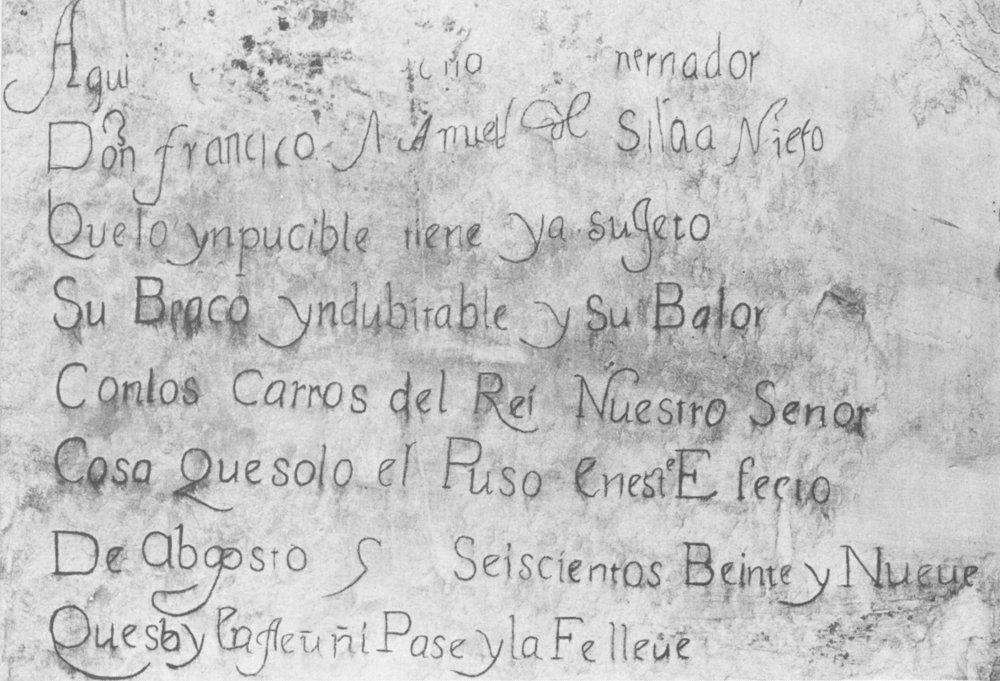 Aqui nernador
Don francico Manuel de Silua Nieto
Que lo ynpucible tiene ya sugeto
Su Braco yndubitable y su Balor
Con los Carros del Rei Nuestro Senor
Cosa Que solo el Puso en este Efecto
De Abgosto Seiscientos Beinte y Nueue
Que s Pase y la Fe lleue